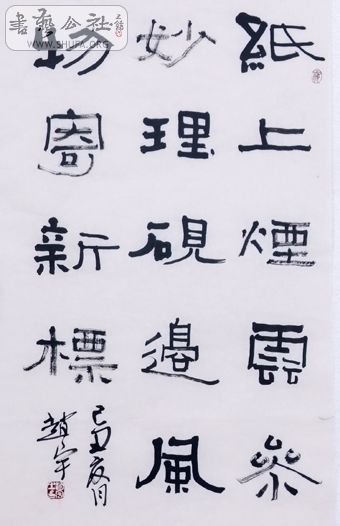 紙上煙雲參
妙理硯邊風
物寓新標
己丑夏月
趙宇
書藝公社
WWW.SHUFA.ORG